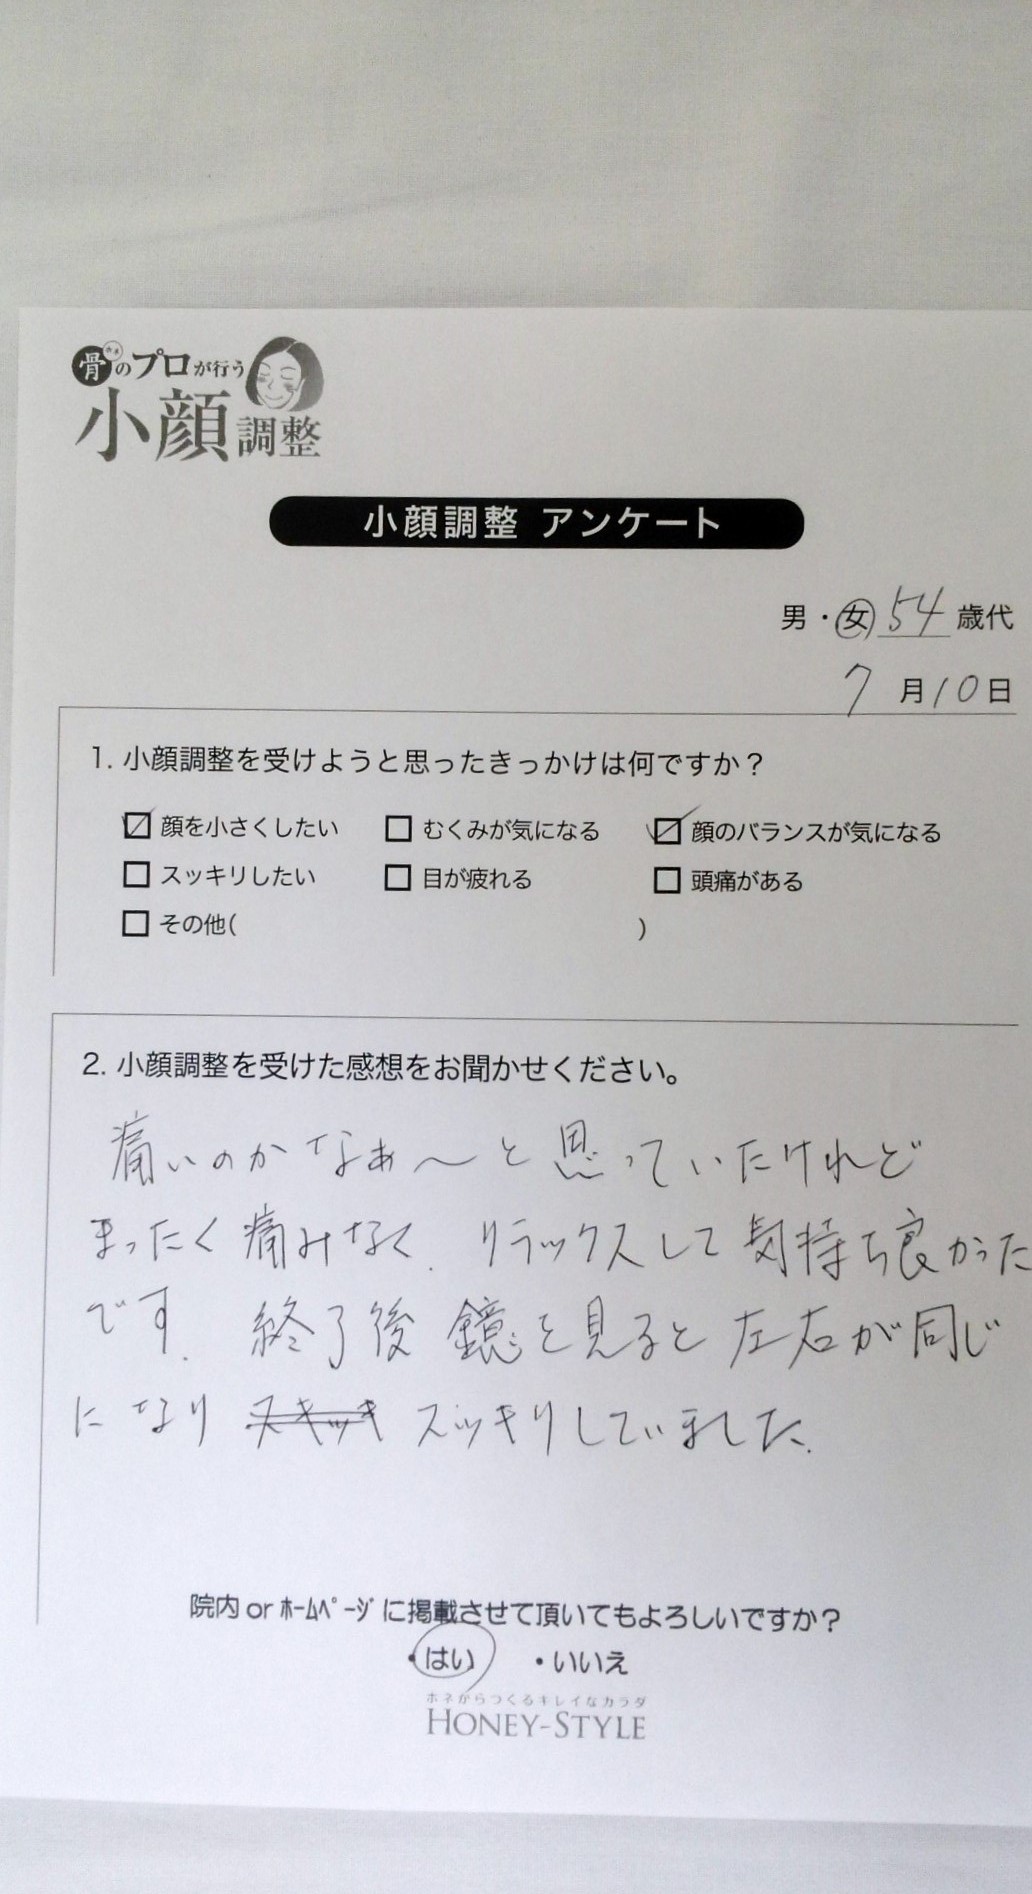 骨のプロが行う
小顔調整
小顔調整 アンケート
男・女 54 歳代
7月10日
1. 小顔調整を受けようと思ったきっかけは何ですか？
顔を小さくしたい むくみが気になる 顔のバランスが気になる
スッキリしたい 目が疲れる 頭痛がある
その他( )
2. 小顔調整を受けた感想をお聞かせください。
痛いのかなぁ〜と思っていたけれど
まったく痛みなく、リラックスして気持ち良かった
です。終了後 鏡を見ると左右が同じ
になり スキッキ スッキリしていました。
院内 or ﾎｰﾑﾍﾟｰｼﾞに掲載させて頂いてもよろしいですか？
・はい ・いいえ
ホネからつくるキレイなカラダ
HONEY-STYLE